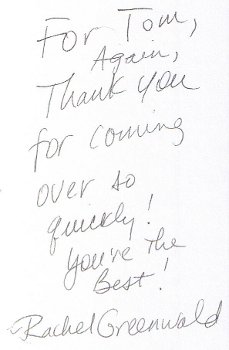 For Tom,
Again,
Thank you
for coming
over so
quickly!
You're the
Best!
Rachel Greenwald